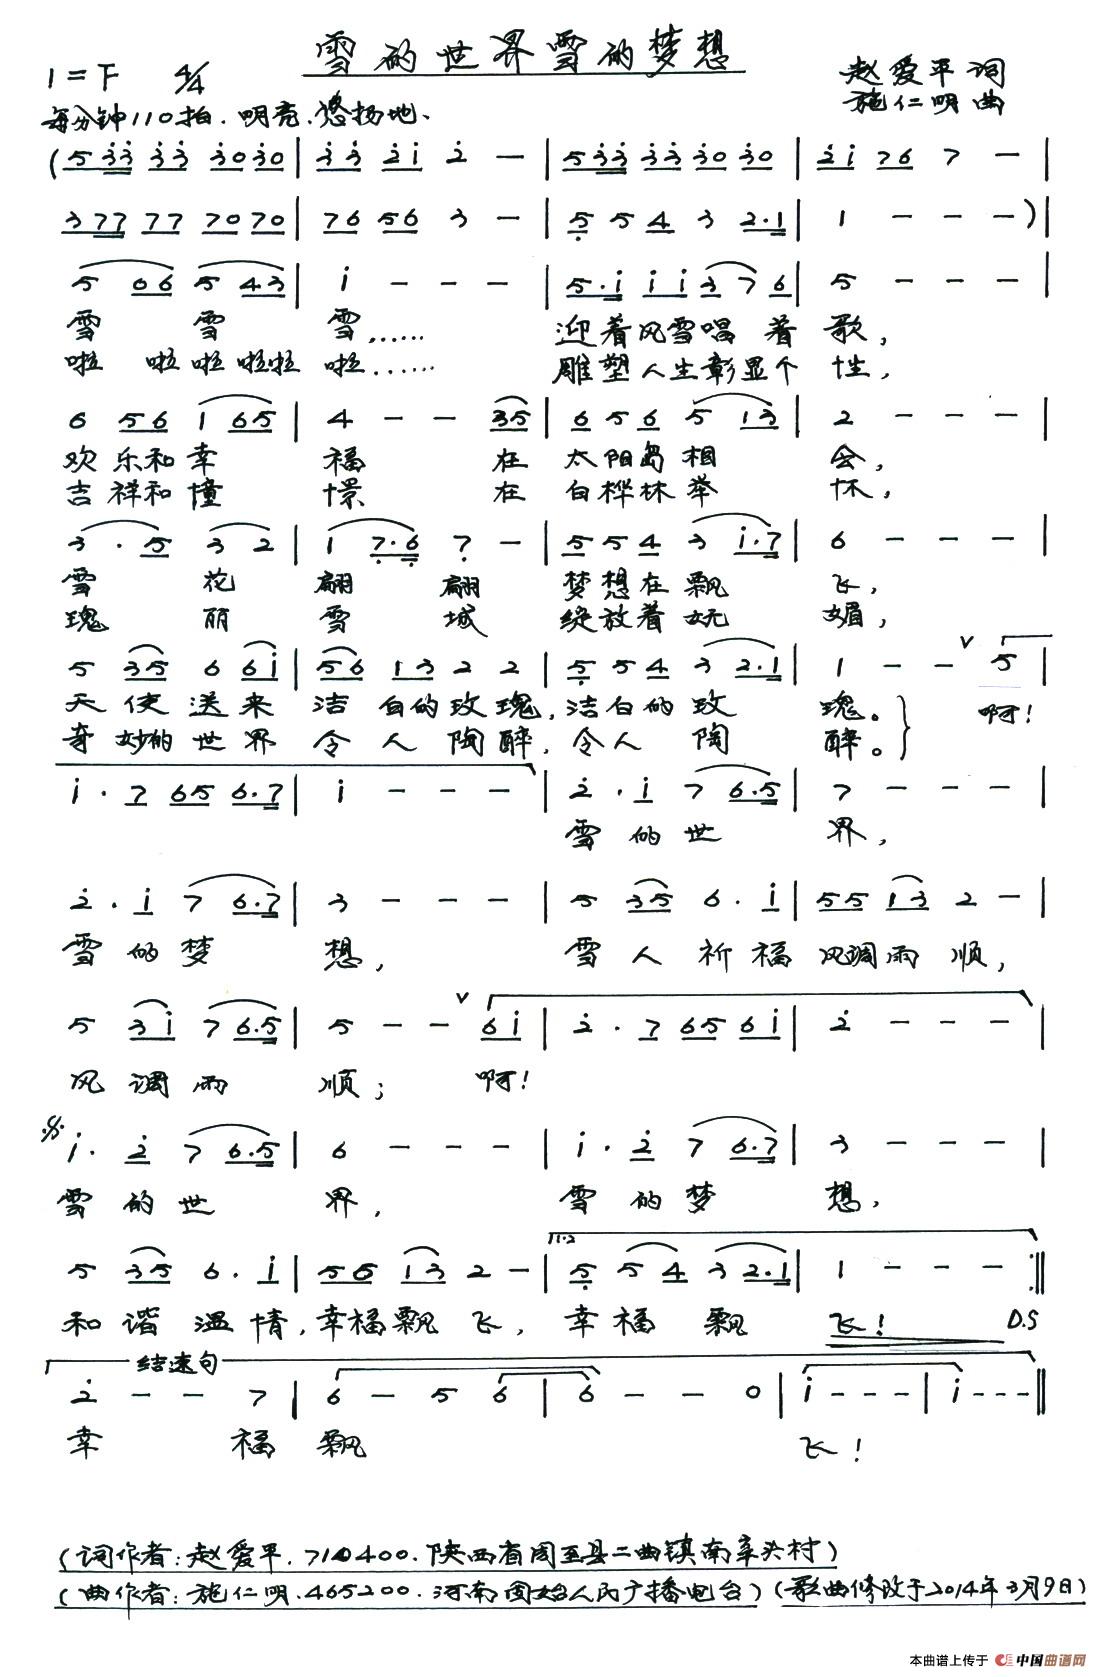 雪的世界雪的梦想
1=F 4/4
赵爱平 词
施仁明 曲
每分钟110拍.明亮.悠扬地、
(5 3̇3̇ 3̇3̇ 3̇0 3̇0 | 3̇3̇ 2̇1̇ 2̇ — | 5 3̇3̇ 3̇3̇ 3̇0 3̇0 | 2̇1̇ 76 7 — |
3 77 77 70 70 | 76 56 3 — | 5̣ 5 4 3 2·1 | 1 — — — ) |
5 06 5 43 | 1̇ — — — | 5·1̇ 1̇ 1̇ 3 7 6 | 5 — — — |
雪 雪 雪…… 迎着风雪唱 着 歌,
啦 啦啦啦啦 啦…… 雕塑人生彰显个 性,
6 56 1 65 | 4 — — 35 | 6 5 6 5 13 | 2 — — — |
欢乐和幸 福 在 太阳岛相 会,
吉祥和憧 憬 在 白桦林举 怀,
3 · 5 3 2 | 1 7̣·6̣ 7̣ — | 5 5 4 3 1̇·7 | 6 — — — |
雪 花 翩 翩 梦想在飘 飞,
瑰 丽 雪 城 绽放着妩 媚,
5 35 6 61̇ | 56 13 2 2 | 5̣ 5 4 3 2·1 | 1 — — ∨ 5 |
天使送来 洁白的玫瑰,洁白的玫 瑰。 啊!
奇妙的世界 令人陶醉,令人陶 醉。
1̇ · 7 65 6·7 | 1̇ — — — | 2̇ · 1̇ 7 6·5 | 7 — — — |
雪的世 界,
2̇ · 1̇ 7 6·7 | 3 — — — | 5 35 6 · 1̇ | 55 13 2 — |
雪的梦 想, 雪人祈福风调雨顺,
5 31̇ 7 6·5 | 5 — — ∨ 61̇ | 2̇ · 7 65 61̇ | 2̇ — — — |
风调雨 顺; 啊!
𝄋 1̇ · 2̇ 7 6·5 | 6 — — — | 1̇ · 2̇ 7 6·7 | 3 — — — |
雪的世 界, 雪的梦 想,
1.2
5 35 6 · 1̇ | 55 13 2 — | 5̣ 5 4 3 2·1 | 1 — — — :||
和谐温情,幸福飘飞,幸福 飘 飞! D.S
结束句
2̇ — — 7 | 6 — 5 6 | 6 — — 0 | 1̇ - - - | 1̇ - - - ||
幸 福 飘 飞!
(词作者:赵爱平.710400.陕西省周至县二曲镇南辛头村)
(曲作者:施仁明.465200.河南固始人民广播电台)(歌曲修改于2014年3月9日)
本曲谱上传于 中国曲谱网